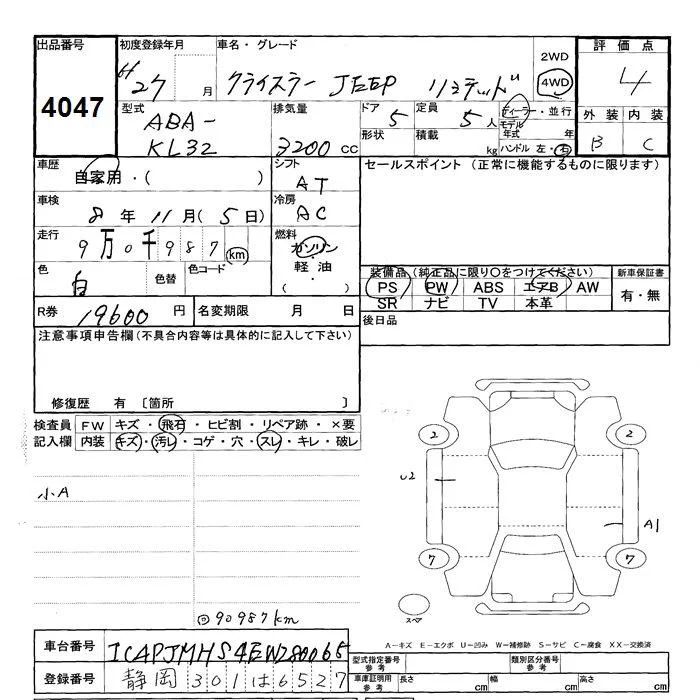 出品番号 初度登録年月 車名・グレード 2WD 評価点
4047 H27 月 クライスラー JEEP リミテッド 4WD 4
型式 排気量 ドア 定員 ディーラー・並行 外装 内装
ABA- 5 5人 モデル年式 年 B C
KL32 3200 cc 形状 積載 kg ハンドル 左・右
車歴 シフト セールスポイント (正常に機能するものに限ります)
自家用・( ) AT
車検 冷房
8年11月(5日) AC
走行 燃料
9万0千987 km ガソリン
色 色替 色コード 軽油 装備品(純正品に限り○をつけてください) 新車保証書
白 ( ) PS PW ABS エアB AW 有・無
SR ナビ TV 本革
R券 19600 円 名変期限 月 日 後日品
注意事項申告欄(不具合内容等は具体的に記入して下さい)
修復歴 有 〔箇所 〕
検査員 FW キズ・飛石・ヒビ割・リペア跡・×要
記入欄 内装 キズ・汚レ・コゲ・穴・スレ・キレ・破レ
2 2
U2
小A
A1
7 7
スペア
90987km
A-キズ E-エクボ U-凹み W-補修跡 S-サビ C-腐食 XX-交換済
車台番号 1C4PJMHS4EW280065 型式指定番号 参考 類別区分番号 参考
登録番号 静岡 301は6527 車庫証明用 参考 長さ cm 幅 cm 高さ cm